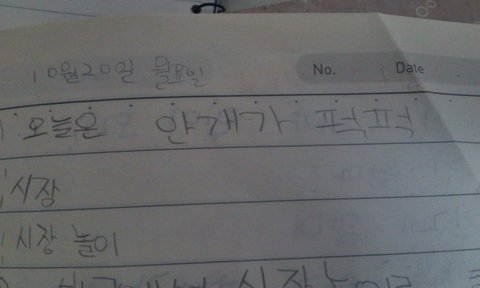 10월20일 월요일
No. Date
오늘은 안개가 퍽퍽
시장
시장 놀이
시장놀이